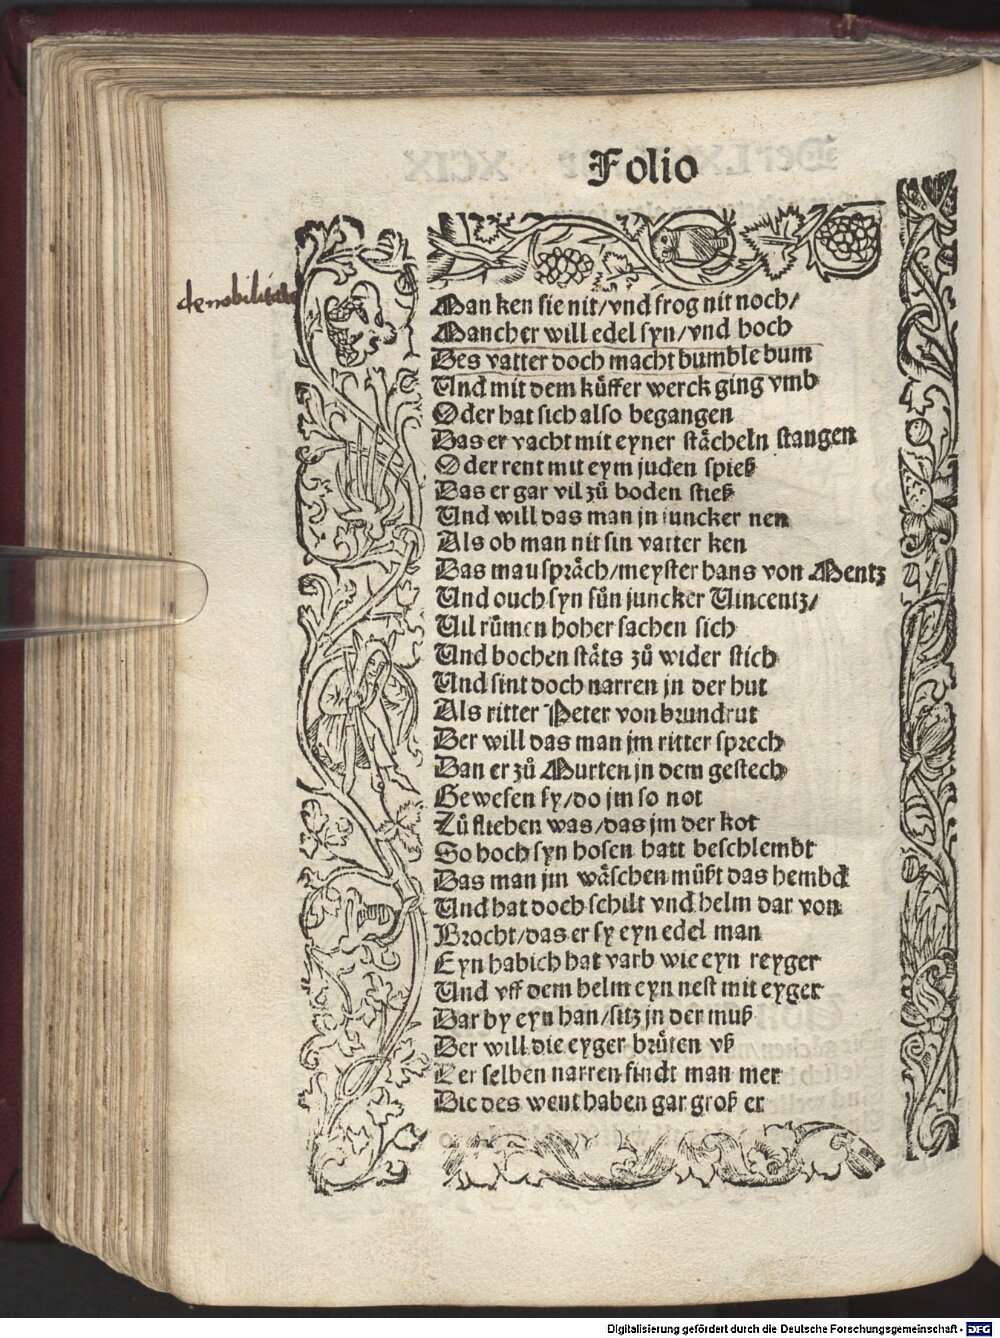 Folio
de nobilitate
Man ken sie nit/vnd frog nit noch/
Mancher will edel syn/vnd hoch
Des vatter doch macht bumble bum
Und mit dem küffer werck ging vmb
Oder hat sich also begangen
Das er vacht mit eyner stächeln stangen
Oder rent mit eym juden spieß
Das er gar vil zuͦ boden stieß
Und will das man jn iuncker nen
Als ob man nit sin vatter ken
Das mau spräch/meyster hans von Mentz
Und ouch syn sün juncker Uincentz/
Uil rümen hoher sachen sich
Und bochen stäts zuͦ wider stich
Und sint doch narren jn der hut
Als ritter Peter von brundrut
Der will das man jm ritter sprech
Dan er zuͦ Murten jn dem gestech
Gewesen sy/do jm so not
Zuͦ fliehen was/das jm der kot
So hoch syn hosen hatt beschlembt
Das man jm wäschen müßt das hembd
Und hat doch schilt vnd helm dar von
Brocht/das er sy eyn edel man
Eyn habich hat varb wie eyn reyger
Und vff dem helm eyn nest mit eyger
Dar by eyn han/sitz jn der muß
Der will die eyger brüten vß
Der selben narren findt man mer
Die des went haben gar groß er
Digitalisierung gefördert durch die Deutsche Forschungsgemeinschaft - DFG